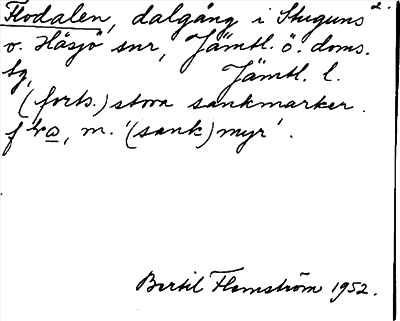 Flodalen, dalgång i Stuguns 2.
o. Håsjö snr, Jämtl. ö. doms.
tg, Jämtl. l.
(forts.) stora sankmarker.
m. '(sank)myr'.
Bertil Flemström 1952.